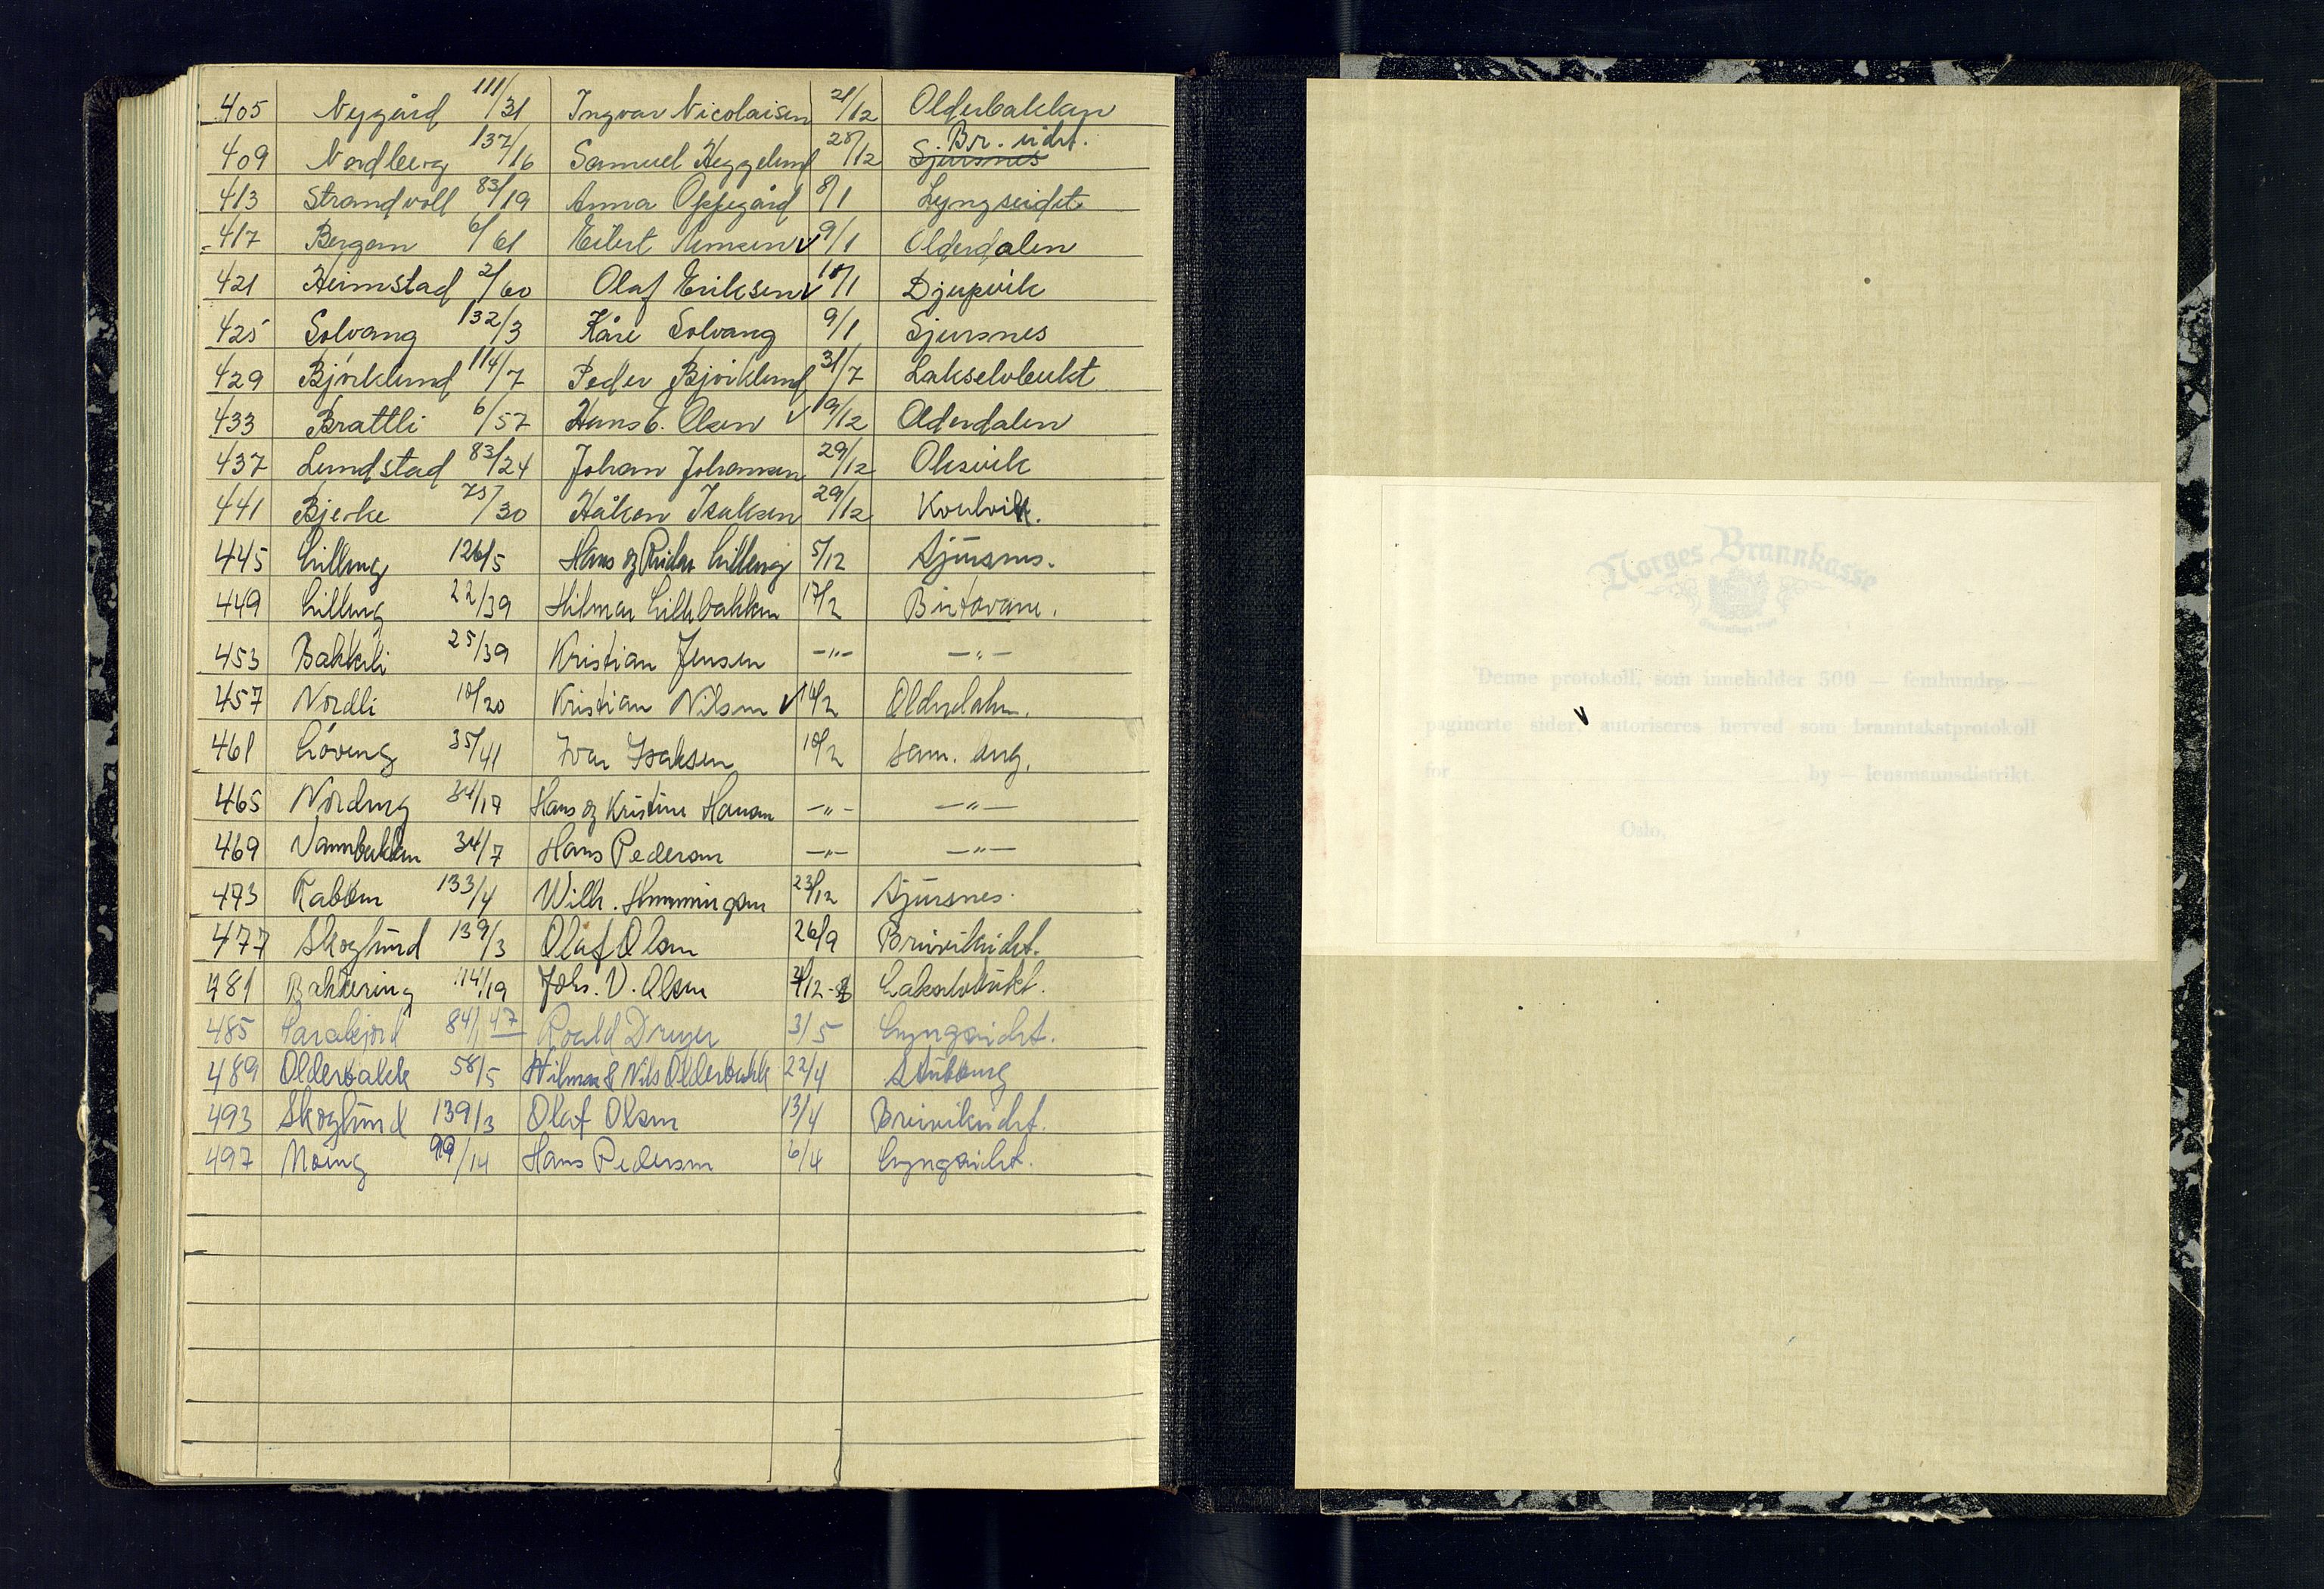 405 Nygård 111/31 Ingvar Nicolaisen 21/12 Olderbakken
409 Nordberg 137/16 Samuel Heggelund 28/12 Sjursnes Br. eidet.
413 Strandvoll 83/19 Anna Oppegård 8/1 Lyngseidet
417 Bergam 6/61 Eilert Simonsen v 9/1 Olderdalen
421 Heimstad 2/60 Olaf Eriksen v 10/1 Djupvik
425 Solvang 132/3 Kåre Solvang 9/1 Sjursnes
429 Björklund 114/7 Peder Björklund 31/7 Lakselvbukt
433 Brattli 6/57 Hans C. Olsen v 19/12 Olderdalen
437 Lundstad 83/24 Johan Johansen 29/12 Oksvik
441 Bjerke 75/30 Håkon Isaksen 29/12 Kvalvik.
445 Lilleng 126/5 Hans og Lilleng 5/12 Sjursnes.
449 Lilleng 22/39 Hilmar Lillebakken 17/2 Birtavarre.
453 Bakkeli 25/39 Kristian Jensen -"- -"-
457 Nordli 10/20 Kristian Nilsen v 16/2 Olderdalen.
461 Löveng 35/41 Ivar Isaksen 18/2 Sam. berg.
465 Nordeng 34/17 Hans og Kristine Hansen -"- -"-
469 Vannbakken 34/7 Hans Pedersen -"- -"-
473 Rabben 133/4 Wilh. Hemmingsen 23/12 Sjursnes.
477 Skoglund 139/3 Olaf Olsen 26/9 Breivikeidet.
481 Bakkering 114/19 Johs. V. Olsen Lakselvbukt.
485 84/47 Roald Dreyer 3/5 Lyngseidet.
489 Olderbakk 58/5 Hilmar & Nils Olderbakk 22/4 Stubbeng
493 Skoglund 139/3 Olaf Olsen 13/4 Breivikeidet.
497 Moeng 99/14 Hans Pedersen 6/4 Lyngseidet.
Norges Brannkasse
Denne protokoll, som inneholder 500 — femhundre —
paginerte sider, autoriseres herved som branntakstprotokoll
for by — lensmannsdistrikt.
Oslo,